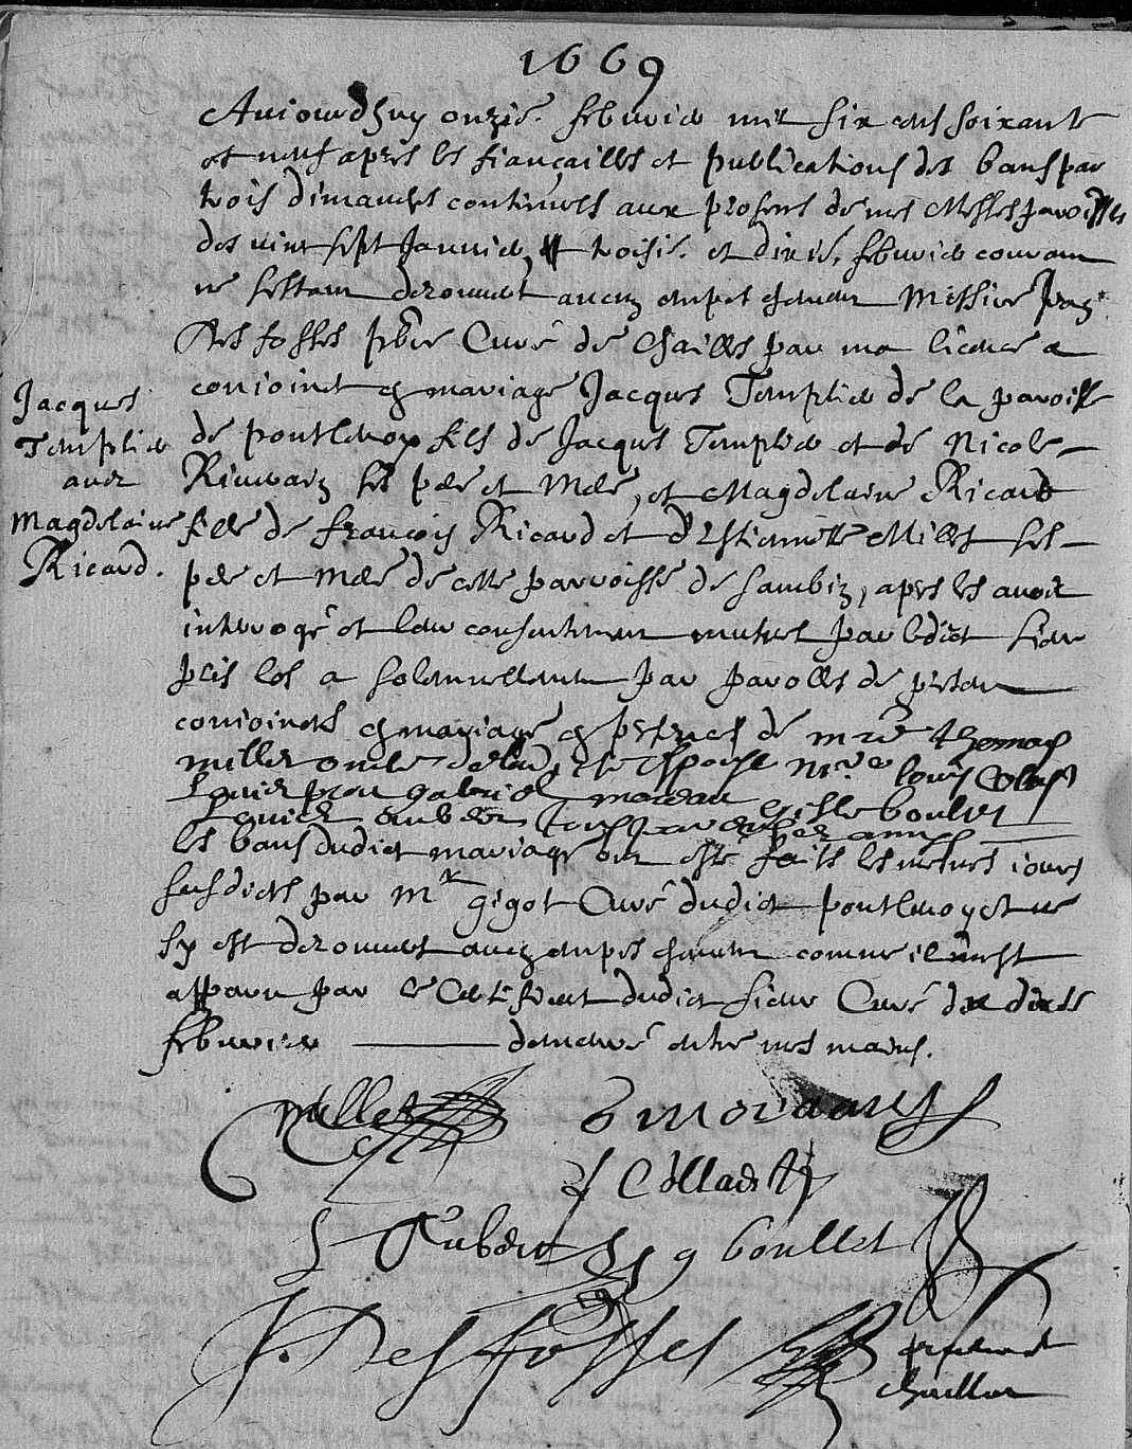 1669
Aujourdhuy onzie. febuvier mil six cens soixante
et neuf apres les fiançailles et publications des bans par
trois dimanches continuels aux prosnes de mes Messes paroissiales
des vint sept Janvier, troisie. et dixie. febuvier courant
ne sestant descouvert aucun empeschement Messire
Des fosses pbre Curé de Chailles par ma licence a
conjoint en mariage Jacques Templier de la paroisse
de pontlevoy fils de Jacques Templier et de Nicole
ses pere et Mere, et Magdelaine Ricard
fille de françois Ricard et d'Estiennette Millet ses
pere et mere de cette parroisse de Sambin, apres les avoir
interrogé et leur consentement mutuel par ledict sieur
pris les a solemnellement par parolles de present
conjoincts en mariage en presence de mre thomas
millet oncle de lad. espouse mre louis
gabriel moreau gille boullet
les bans dudict mariage ont esté faits les mesmes jours
susdicts par Mr gigot Curé dudict pontlevoy et ne
sy est descouvert aucun empeschement comme il m'est
apparu par le Certificat dudict sieur Curé
febuvier demeuré entre mes mains.
Jacques
Templier
avec
Magdelaine
Ricard.
Millet
G moreau
Aubert
g boullet
J. Desfosses